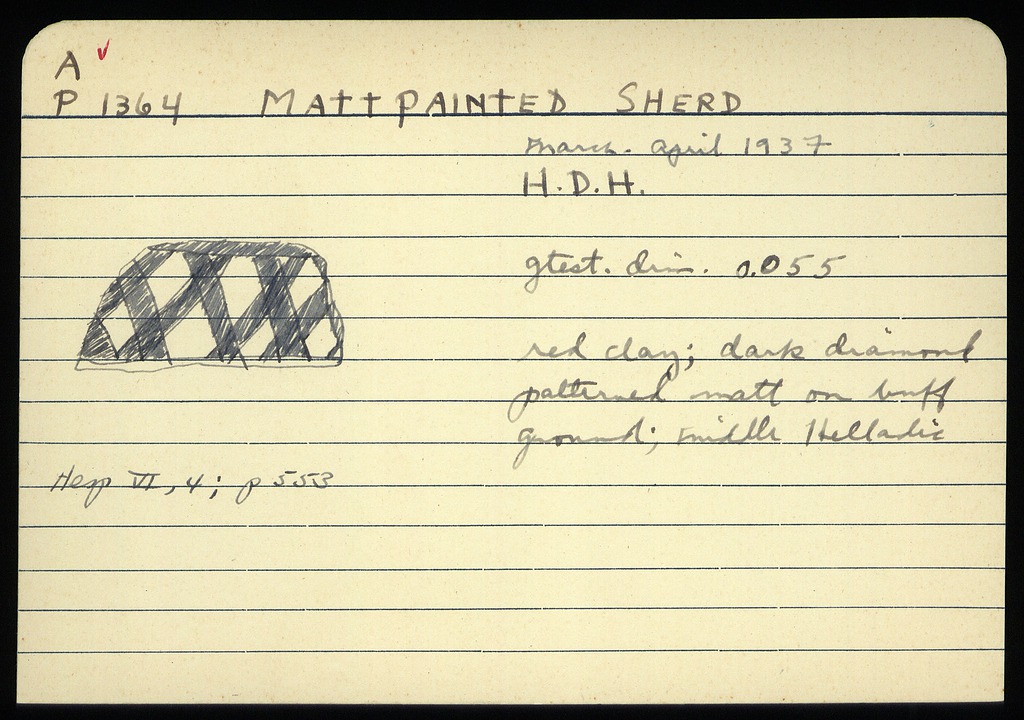 A ✓
P 1364 MATTPAINTED SHERD
March. April 1937
H.D.H.
gtest. dim. 0.055
red clay; dark diamond
patterned matt on buff
ground; middle Helladic
Hesp VI, 4; p 553